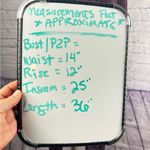 Measurements Flat
& APPROXIMATE
Bust/P2P =
Waist = 14"
Rise = 12"
Inseam = 25"
Length = 36"